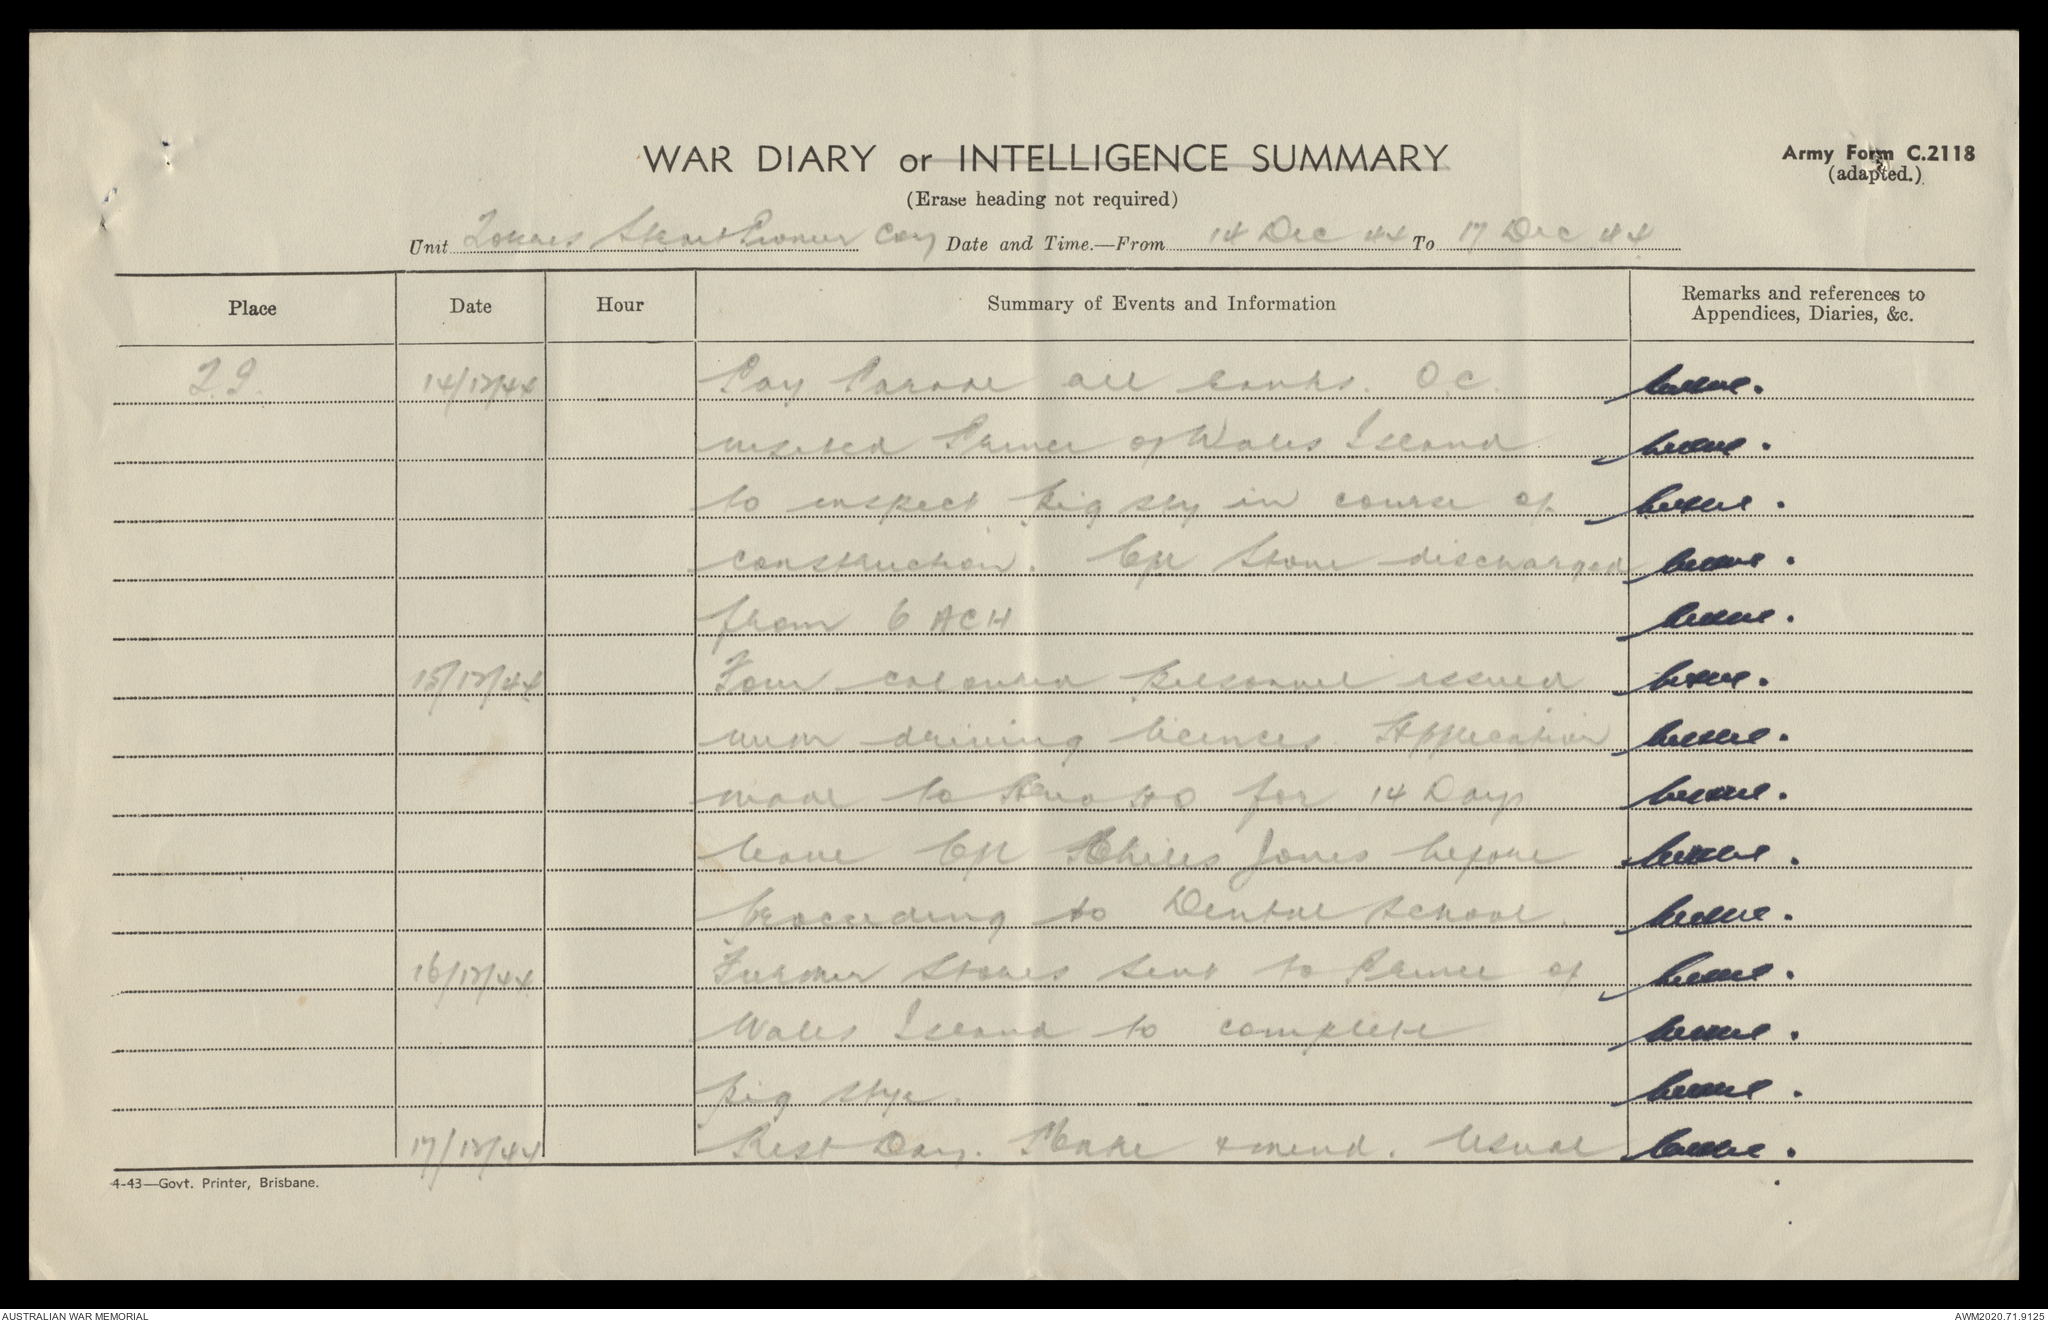 WAR DIARY or INTELLIGENCE SUMMARY
Army Form C.2118
(adapted.)
(Erase heading not required)
Unit Torres Strait Pioneer Coy Date and Time.—From 14 Dec 44 To 17 Dec 44
Place Date Hour Summary of Events and Information Remarks and references to
Appendices, Diaries, &c.
T.I. 14/12/44 Pay Parade all ranks. O.C.
visited Prince of Wales Island
to inspect pig sty in course of
construction. Cpl Stone discharged
from 6 ACH
15/12/44 Four coloured personnel issued
with driving licences. Application
made to for 14 Days
leave Cpl Jones before
proceeding to Dental School.
16/12/44 Further stores sent to Prince of
Wales Island to complete
pig stye.
17/12/44 Rest Day. Make & mend. Usual
4-43—Govt. Printer, Brisbane.
AUSTRALIAN WAR MEMORIAL
AWM2020.71.9125